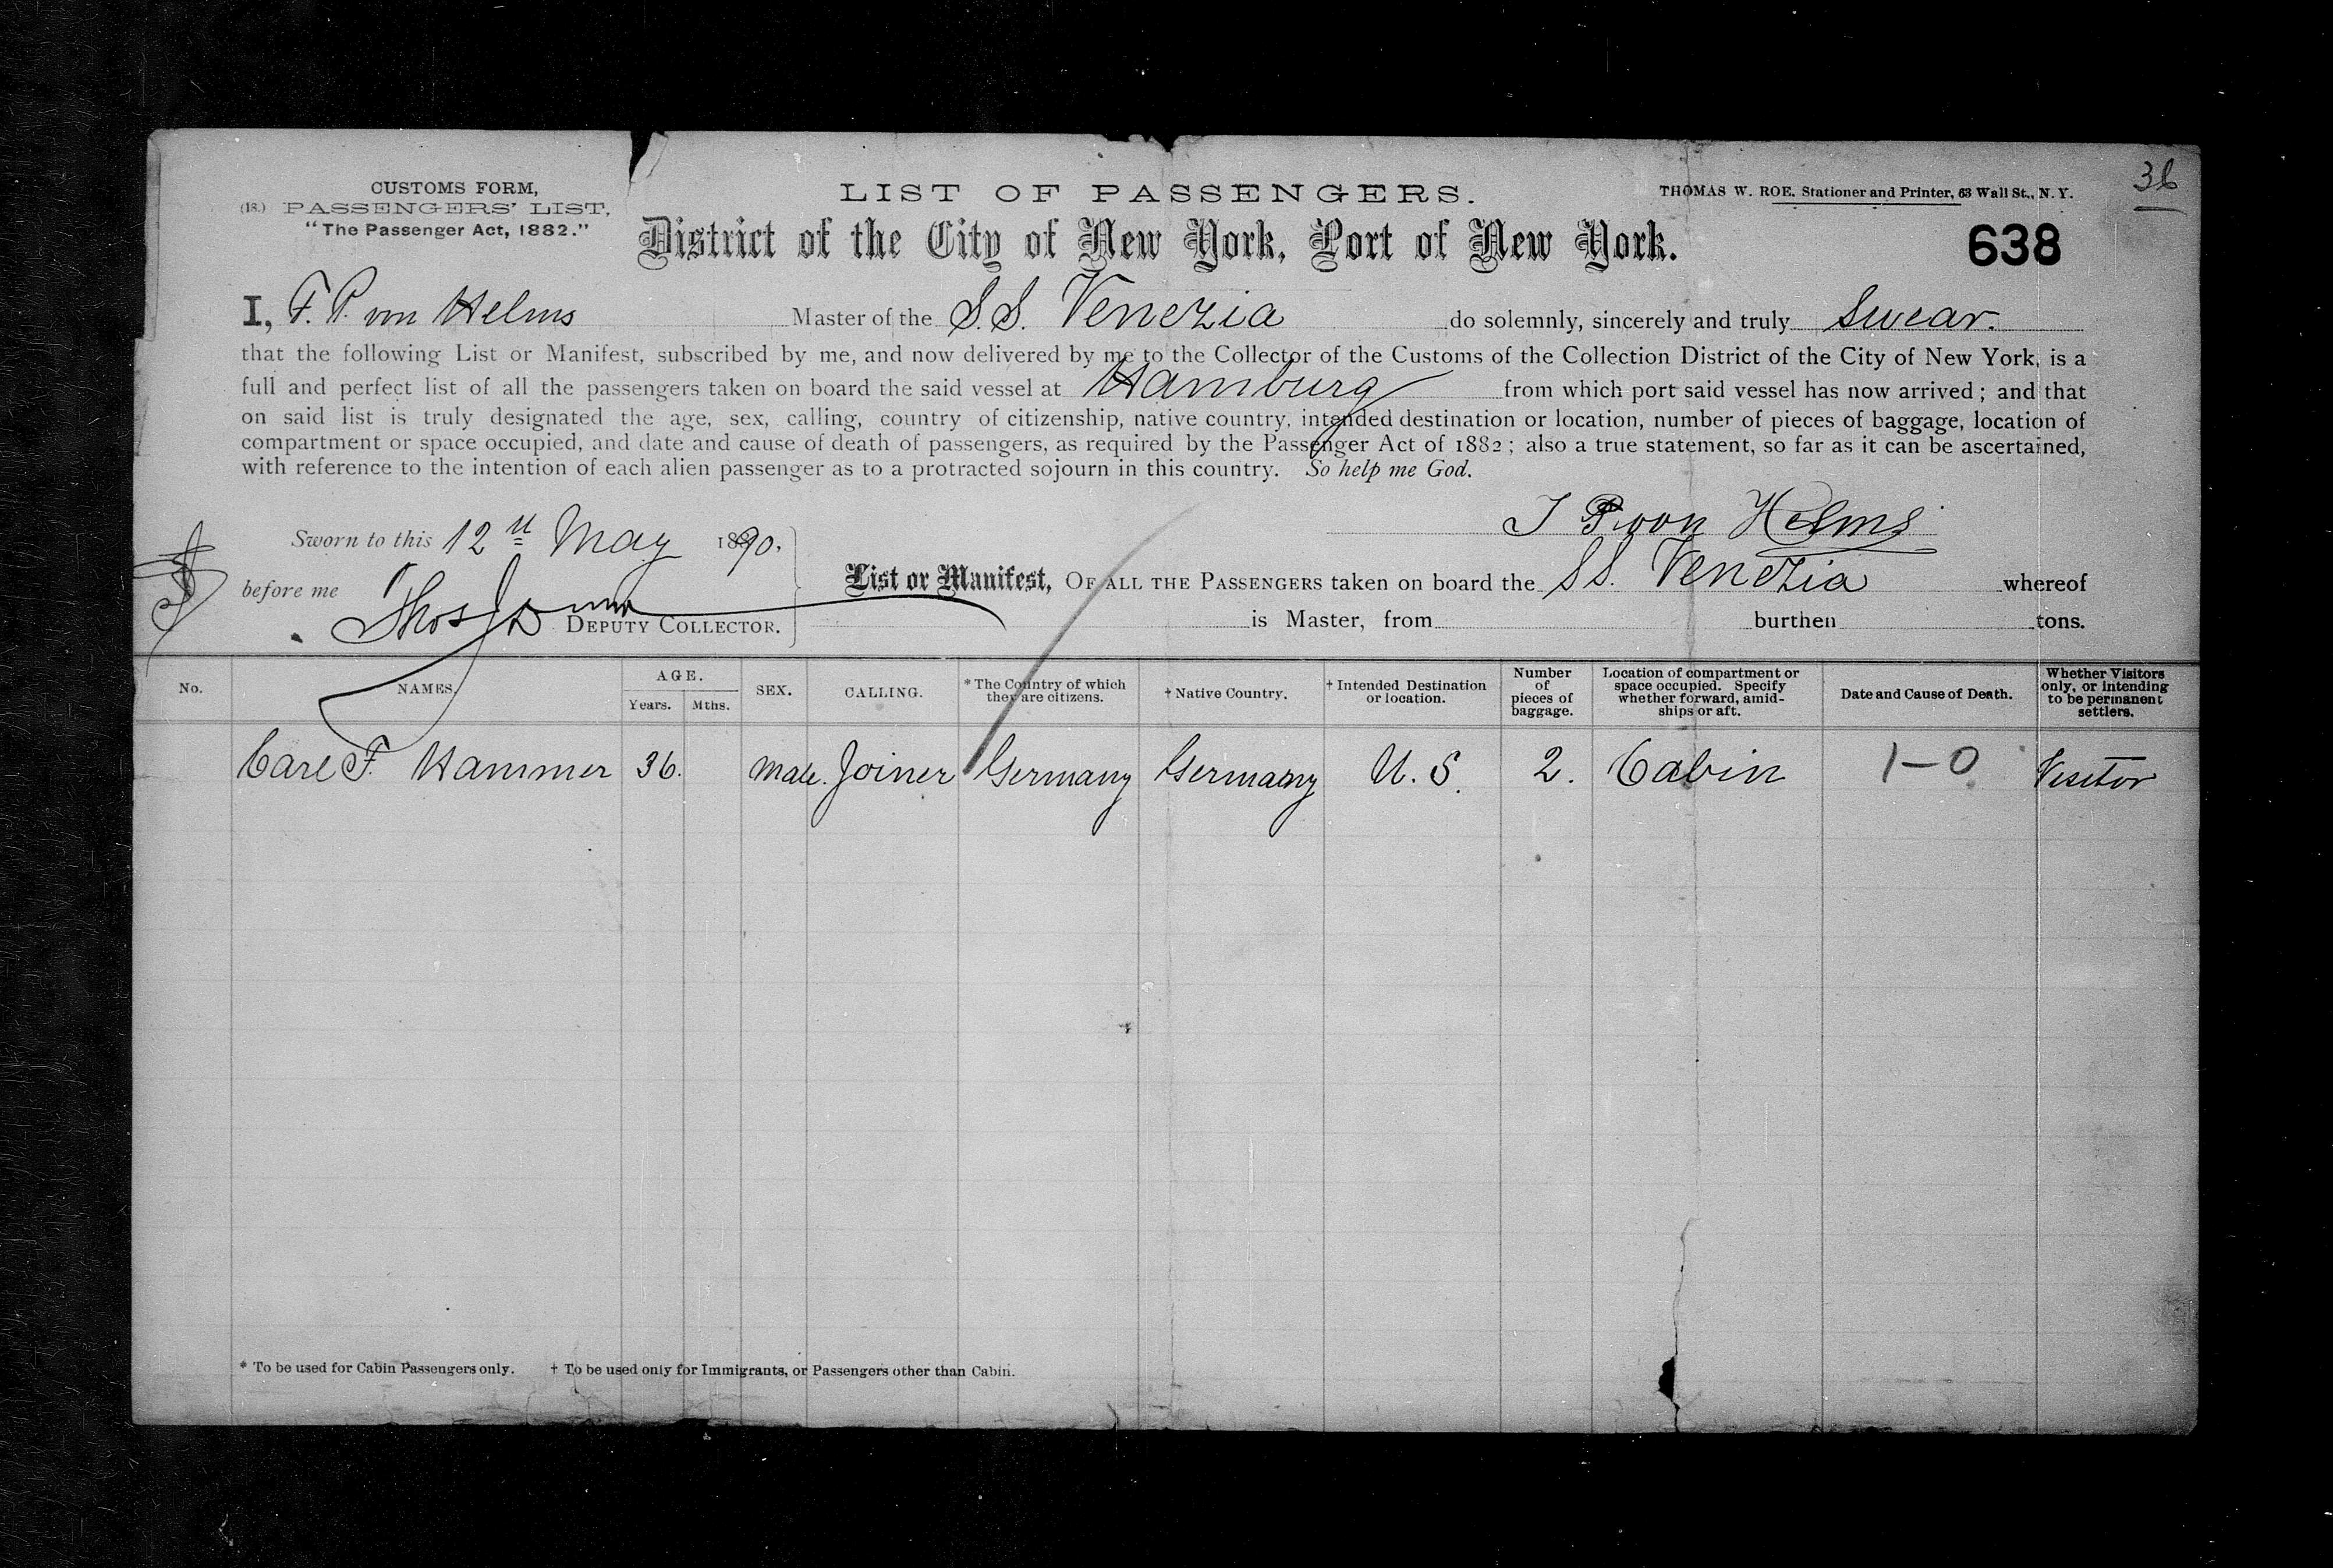 CUSTOMS FORM,
(18.) PASSENGERS' LIST,
"The Passenger Act, 1882."
LIST OF PASSENGERS.
THOMAS W. ROE. Stationer and Printer, 63 Wall St., N. Y.
36
District of the City of New York, Port of New York.
638
I, F. P. von Helms Master of the S.S. Venezia do solemnly, sincerely and truly swear.
that the following List or Manifest, subscribed by me, and now delivered by me to the Collector of the Customs of the Collection District of the City of New York, is a
full and perfect list of all the passengers taken on board the said vessel at Hamburg from which port said vessel has now arrived; and that
on said list is truly designated the age, sex, calling, country of citizenship, native country, intended destination or location, number of pieces of baggage, location of
compartment or space occupied, and date and cause of death of passengers, as required by the Passenger Act of 1882; also a true statement, so far as it can be ascertained,
with reference to the intention of each alien passenger as to a protracted sojourn in this country. So help me God.
Sworn to this 12th May 1890,
von Helms
before me Thos
DEPUTY COLLECTOR.
List or Manifest, OF ALL THE PASSENGERS taken on board the SS. Venezia whereof
is Master, from burthen tons.
No. NAMES. AGE. Years. Mths. SEX. CALLING. * The Country of which they are citizens. † Native Country. † Intended Destination or location. Number of pieces of baggage. Location of compartment or space occupied. Specify whether forward, amidships or aft. Date and Cause of Death. Whether Visitors only, or intending to be permanent settlers.
Carl F. Hammer 36. Male. Joiner Germany Germany U. S. 2. Cabin 1-0 Visitor
* To be used for Cabin Passengers only. † To be used only for Immigrants, or Passengers other than Cabin.